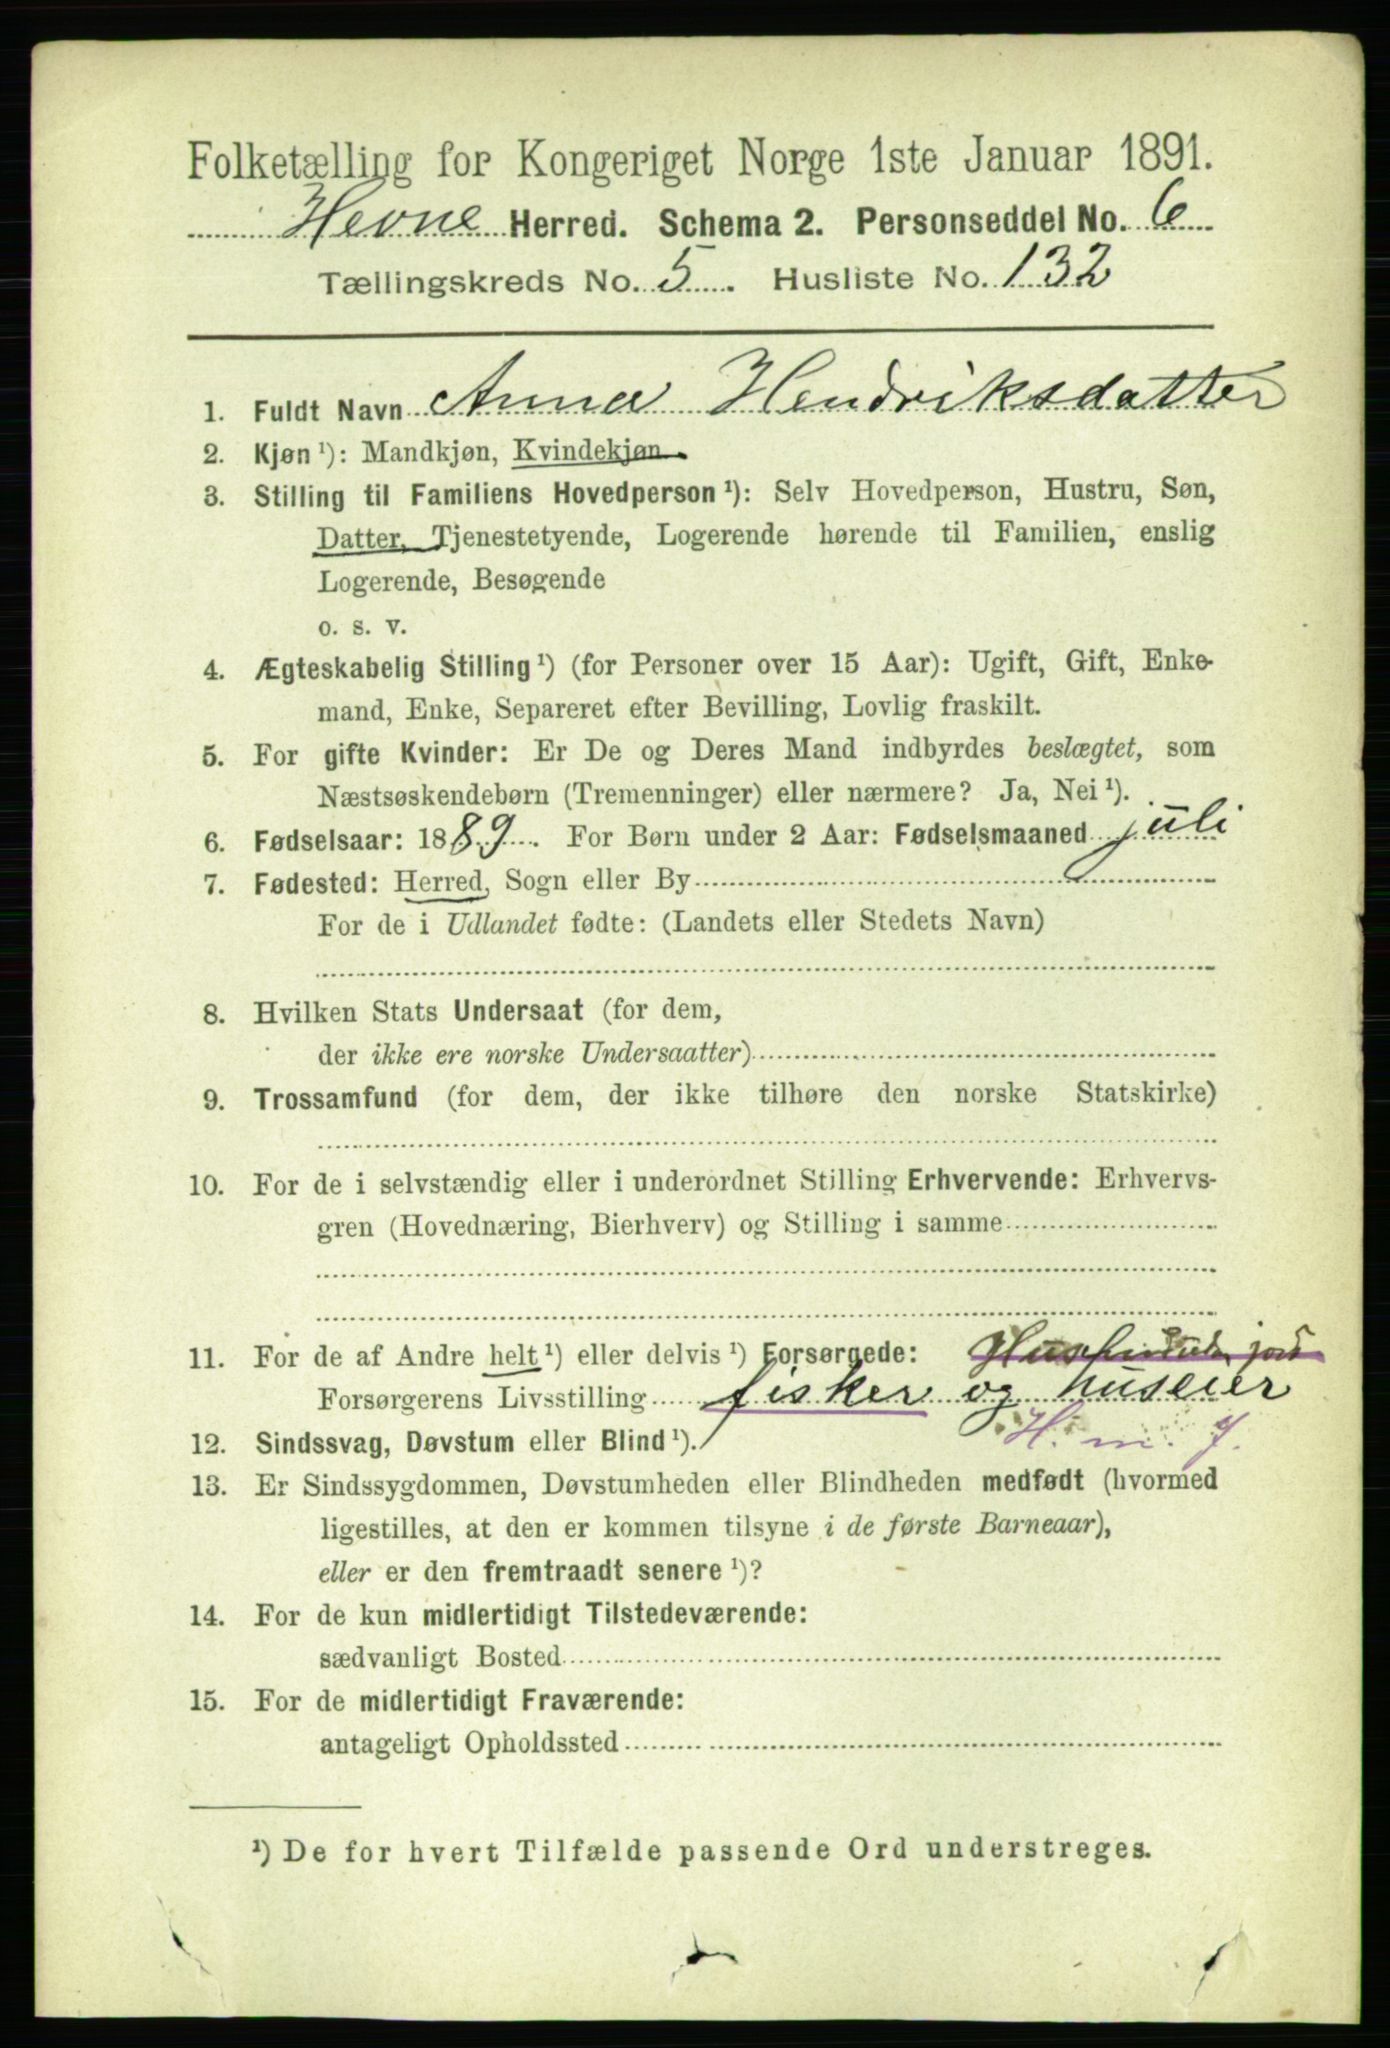 Folketælling for Kongeriget Norge 1ste Januar 1891.
Hevne Herred. Schema 2. Personseddel No. 6
Tællingskreds No. 5. Husliste No. 132
1. Fuldt Navn Anna Hendriksdatter
2. Kjøn ¹): Mandkjøn, Kvindekjøn.
3. Stilling til Familiens Hovedperson ¹): Selv Hovedperson, Hustru, Søn,
Datter, Tjenestetyende, Logerende hørende til Familien, enslig
Logerende, Besøgende
o. s. v.
4. Ægteskabelig Stilling ¹) (for Personer over 15 Aar): Ugift, Gift, Enke-
mand, Enke, Separeret efter Bevilling, Lovlig fraskilt.
5. For gifte Kvinder: Er De og Deres Mand indbyrdes beslægtet, som
Næstsøskendebørn (Tremenninger) eller nærmere? Ja, Nei ¹).
6. Fødselsaar: 1889. For Børn under 2 Aar: Fødselsmaaned juli
7. Fødested: Herred, Sogn eller By
For de i Udlandet fødte: (Landets eller Stedets Navn)
8. Hvilken Stats Undersaat (for dem,
der ikke ere norske Undersaatter)
9. Trossamfund (for dem, der ikke tilhøre den norske Statskirke)
10. For de i selvstændig eller i underordnet Stilling Erhvervende: Erhvervs-
gren (Hovednæring, Bierhverv) og Stilling i samme
11. For de af Andre helt ¹) eller delvis ¹) Forsørgede: jord
Forsørgerens Livsstilling fisker og huseier
12. Sindssvag, Døvstum eller Blind ¹). H. m. J.
13. Er Sindssygdommen, Døvstumheden eller Blindheden medfødt (hvormed
ligestilles, at den er kommen tilsyne i de første Barneaar),
eller er den fremtraadt senere ¹)?
14. For de kun midlertidigt Tilstedeværende:
sædvanligt Bosted
15. For de midlertidigt Fraværende:
antageligt Opholdssted
¹) De for hvert Tilfælde passende Ord understreges.